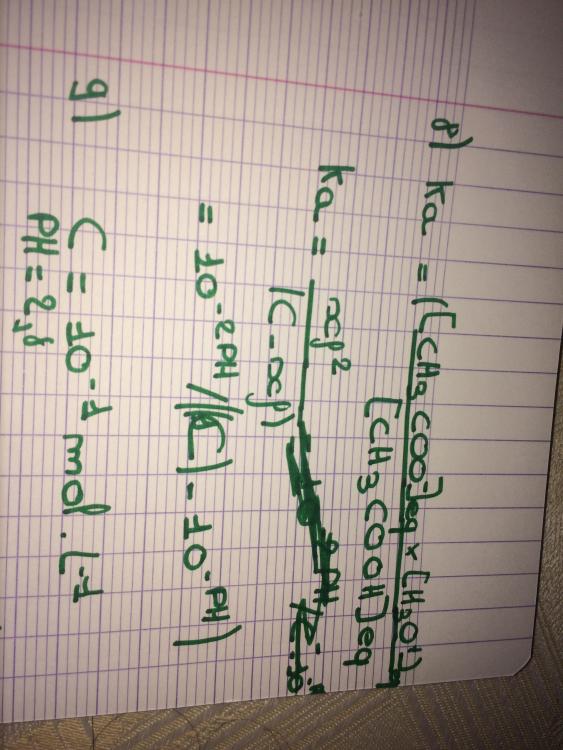 8) Ka = ([CH3COO-]eq × [H3O+])
[CH3COOH]eq
Ka = xf²
(C-xf)
= 10-2PH /((C) - 10-PH)
9) C = 10-1 mol.L-1
PH = 2,8